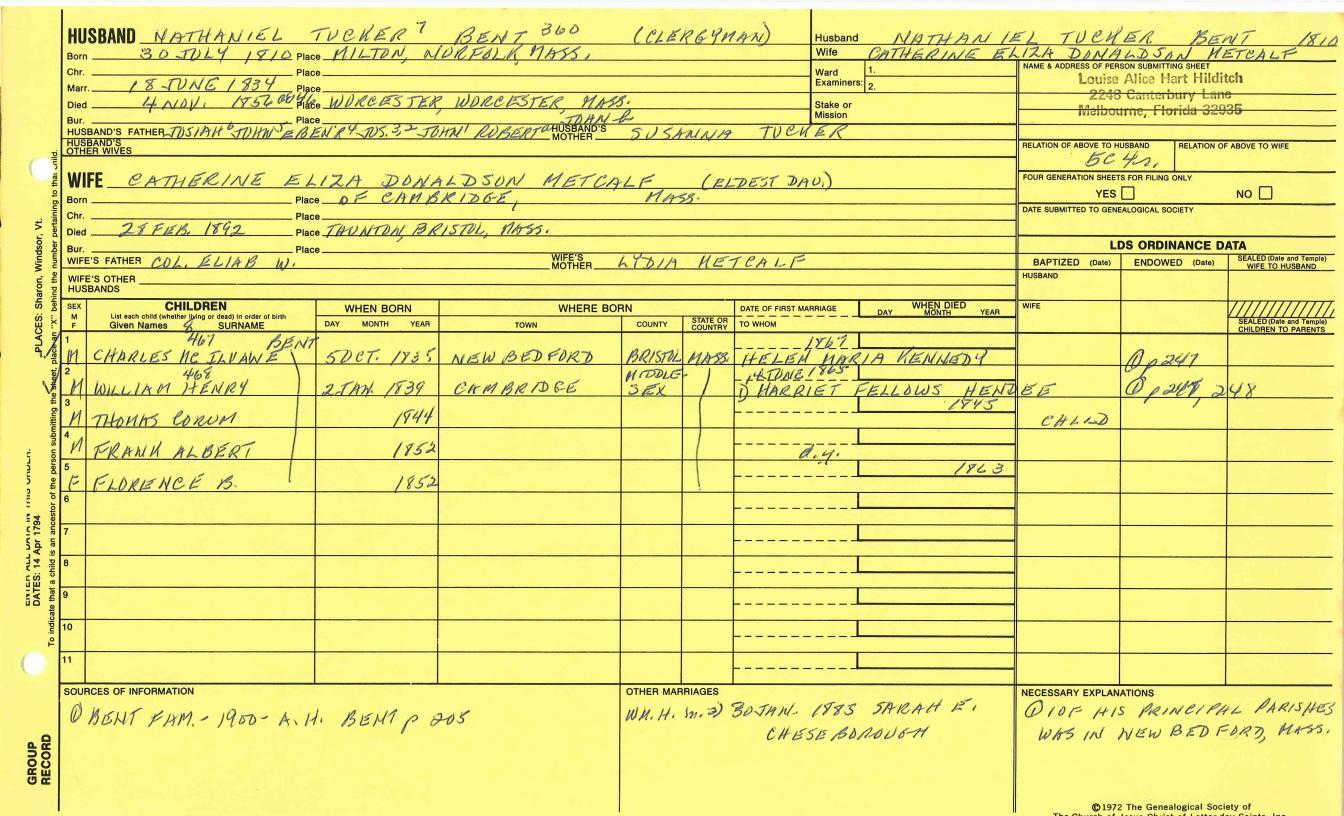 HUSBAND NATHANIEL TUCKER 7 BENT 360 (CLERGYMAN)
Born 30 JULY 1810 Place MILTON, NORFOLK, MASS.
Chr. Place
Marr. 18 JUNE 1834 Place
Died 4 NOV. 1856 Place WORCESTER, WORCESTER, MASS.
Bur. Place
HUSBAND'S FATHER JOSIAH 6 JOHN 5 EBEN'R 4 JOS. 3, 2 JOHN 1 ROBERT HUSBAND'S MOTHER SUSANNA TUCKER
HUSBAND'S OTHER WIVES
WIFE CATHERINE ELIZA DONALDSON METCALF (ELDEST DAU.)
Born Place OF CAMBRIDGE, MASS.
Chr. Place
Died 28 FEB. 1892 Place TAUNTON, BRISTOL, MASS.
Bur. Place
WIFE'S FATHER COL. ELIAB W. WIFE'S MOTHER LYDIA METCALF
WIFE'S OTHER HUSBANDS
Husband NATHANIEL TUCKER BENT 1810
Wife CATHERINE ELIZA DONALDSON METCALF
Ward Examiners: 1.
2.
Stake or Mission
NAME & ADDRESS OF PERSON SUBMITTING SHEET
Louise Alice Hart Hilditch
2248 Canterbury Lane
Melbourne, Florida 32935
RELATION OF ABOVE TO HUSBAND RELATION OF ABOVE TO WIFE
5C 4r.
FOUR GENERATION SHEETS FOR FILING ONLY
YES NO
DATE SUBMITTED TO GENEALOGICAL SOCIETY
LDS ORDINANCE DATA
BAPTIZED (Date) ENDOWED (Date) SEALED (Date and Temple) WIFE TO HUSBAND
HUSBAND
WIFE
SEALED (Date and Temple) CHILDREN TO PARENTS
SEX M F CHILDREN WHEN BORN WHERE BORN DATE OF FIRST MARRIAGE WHEN DIED
List each child (whether living or dead) in order of birth
Given Names 8 SURNAME DAY MONTH YEAR TOWN COUNTY STATE OR COUNTRY TO WHOM DAY MONTH YEAR
1 467 BENT 1867
M CHARLES MC ILVANE 5 OCT. 1835 NEW BEDFORD BRISTOL MASS HELEN MARIA KENNEDY ① p 247
2 468 14 JUNE 1865
M WILLIAM HENRY 2 JAN. 1839 CAMBRIDGE MIDDLE-SEX 1) HARRIET FELLOWS HENDEE ① p 247, 248
3 1845
M THOMAS CORUM 1844 CHILD
4
M FRANK ALBERT 1852 d.y.
5 1863
F FLORENCE B. 1852
6
7
8
9
10
11
SOURCES OF INFORMATION
① BENT FAM. - 1900 - A. H. BENT p 205
OTHER MARRIAGES
WM. H. m. 2) 30 JAN. 1883 SARAH E.
CHESEBOROUGH
NECESSARY EXPLANATIONS
① 1 OF HIS PRINCIPAL PARISHES
WAS IN NEW BEDFORD, MASS.
©1972 The Genealogical Society of
The Church of Jesus Christ of Latter-day Saints, Inc.
PLACES: Sharon, Windsor, Vt.
ENTER ALL DATA IN THIS ORDER:
DATES: 14 Apr 1794
To indicate that a child is an ancestor of the person submitting the sheet, place an "X" behind the number pertaining to that child.
GROUP RECORD